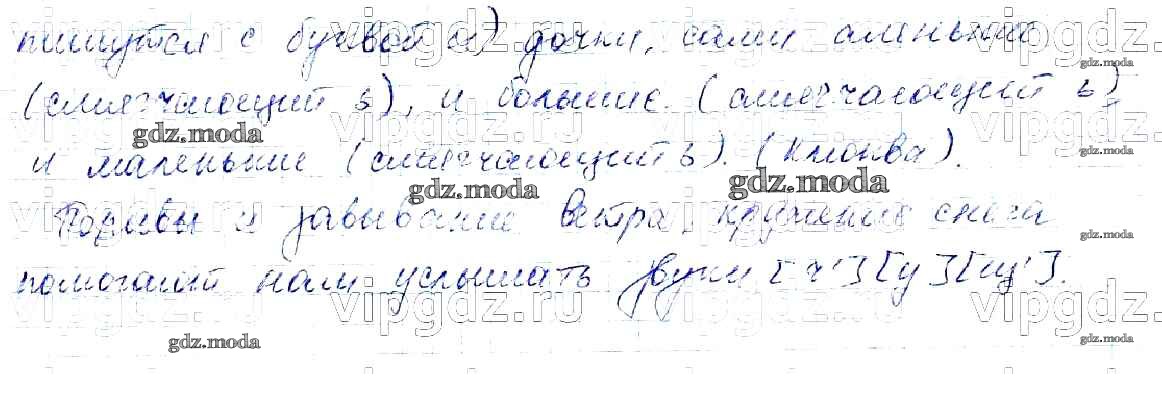 пишутся с буквой и) дочки, сами сменьшие
(смягчающий ь), и большие (смягчающий ь)
и маленькие (смягчающий ь). (клюква).
Порывы и завывание ветра, кружение снега
помогают нам услышать звуки [ч'] [у] [щ'].
vipgdz
gdz.moda